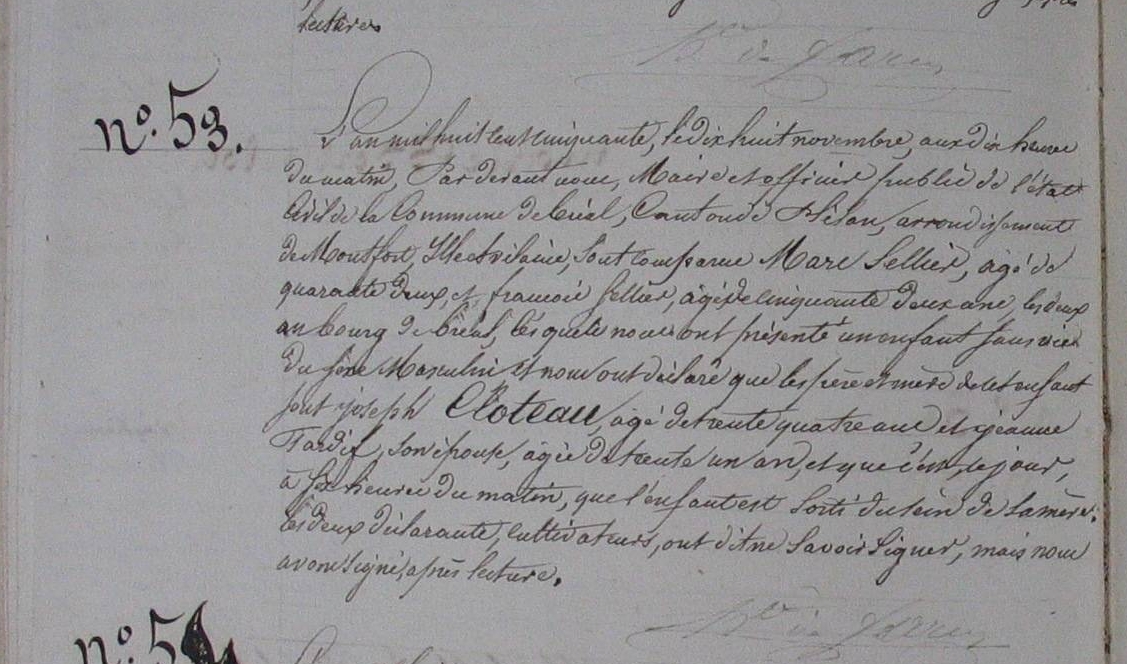 lecture
nº. 53.
L'an mil huit cent cinquante, le dix huit novembre, aux dix heures
du matin, Par devant nous, Maire et officier public de l'état
Civil de la Commune de Bréal, Canton de Plélan, arrondissement
de Montfort, Ille et vilaine, Sont comparus Marc Sellier, agé de
quarante deux, et françois Sellier, agé de cinquante deux ans, les deux
au bourg de Bréal, lesquels nous ont présenté un enfant sans vie
du sèxe Masculin et nous ont déclaré que les père et mère de cet enfant
sont joseph Cloteau, agé de trente quatre ans et jeanne
Tardif, son épouse, agée de trente un an, et que c'est, ce jour,
à six heures du matin, que l'enfant est sorti du sein de sa mère.
les deux déclarants, cultivateurs, ont dit ne savoir signer, mais nous
avons signé, après lecture.
nº. 5